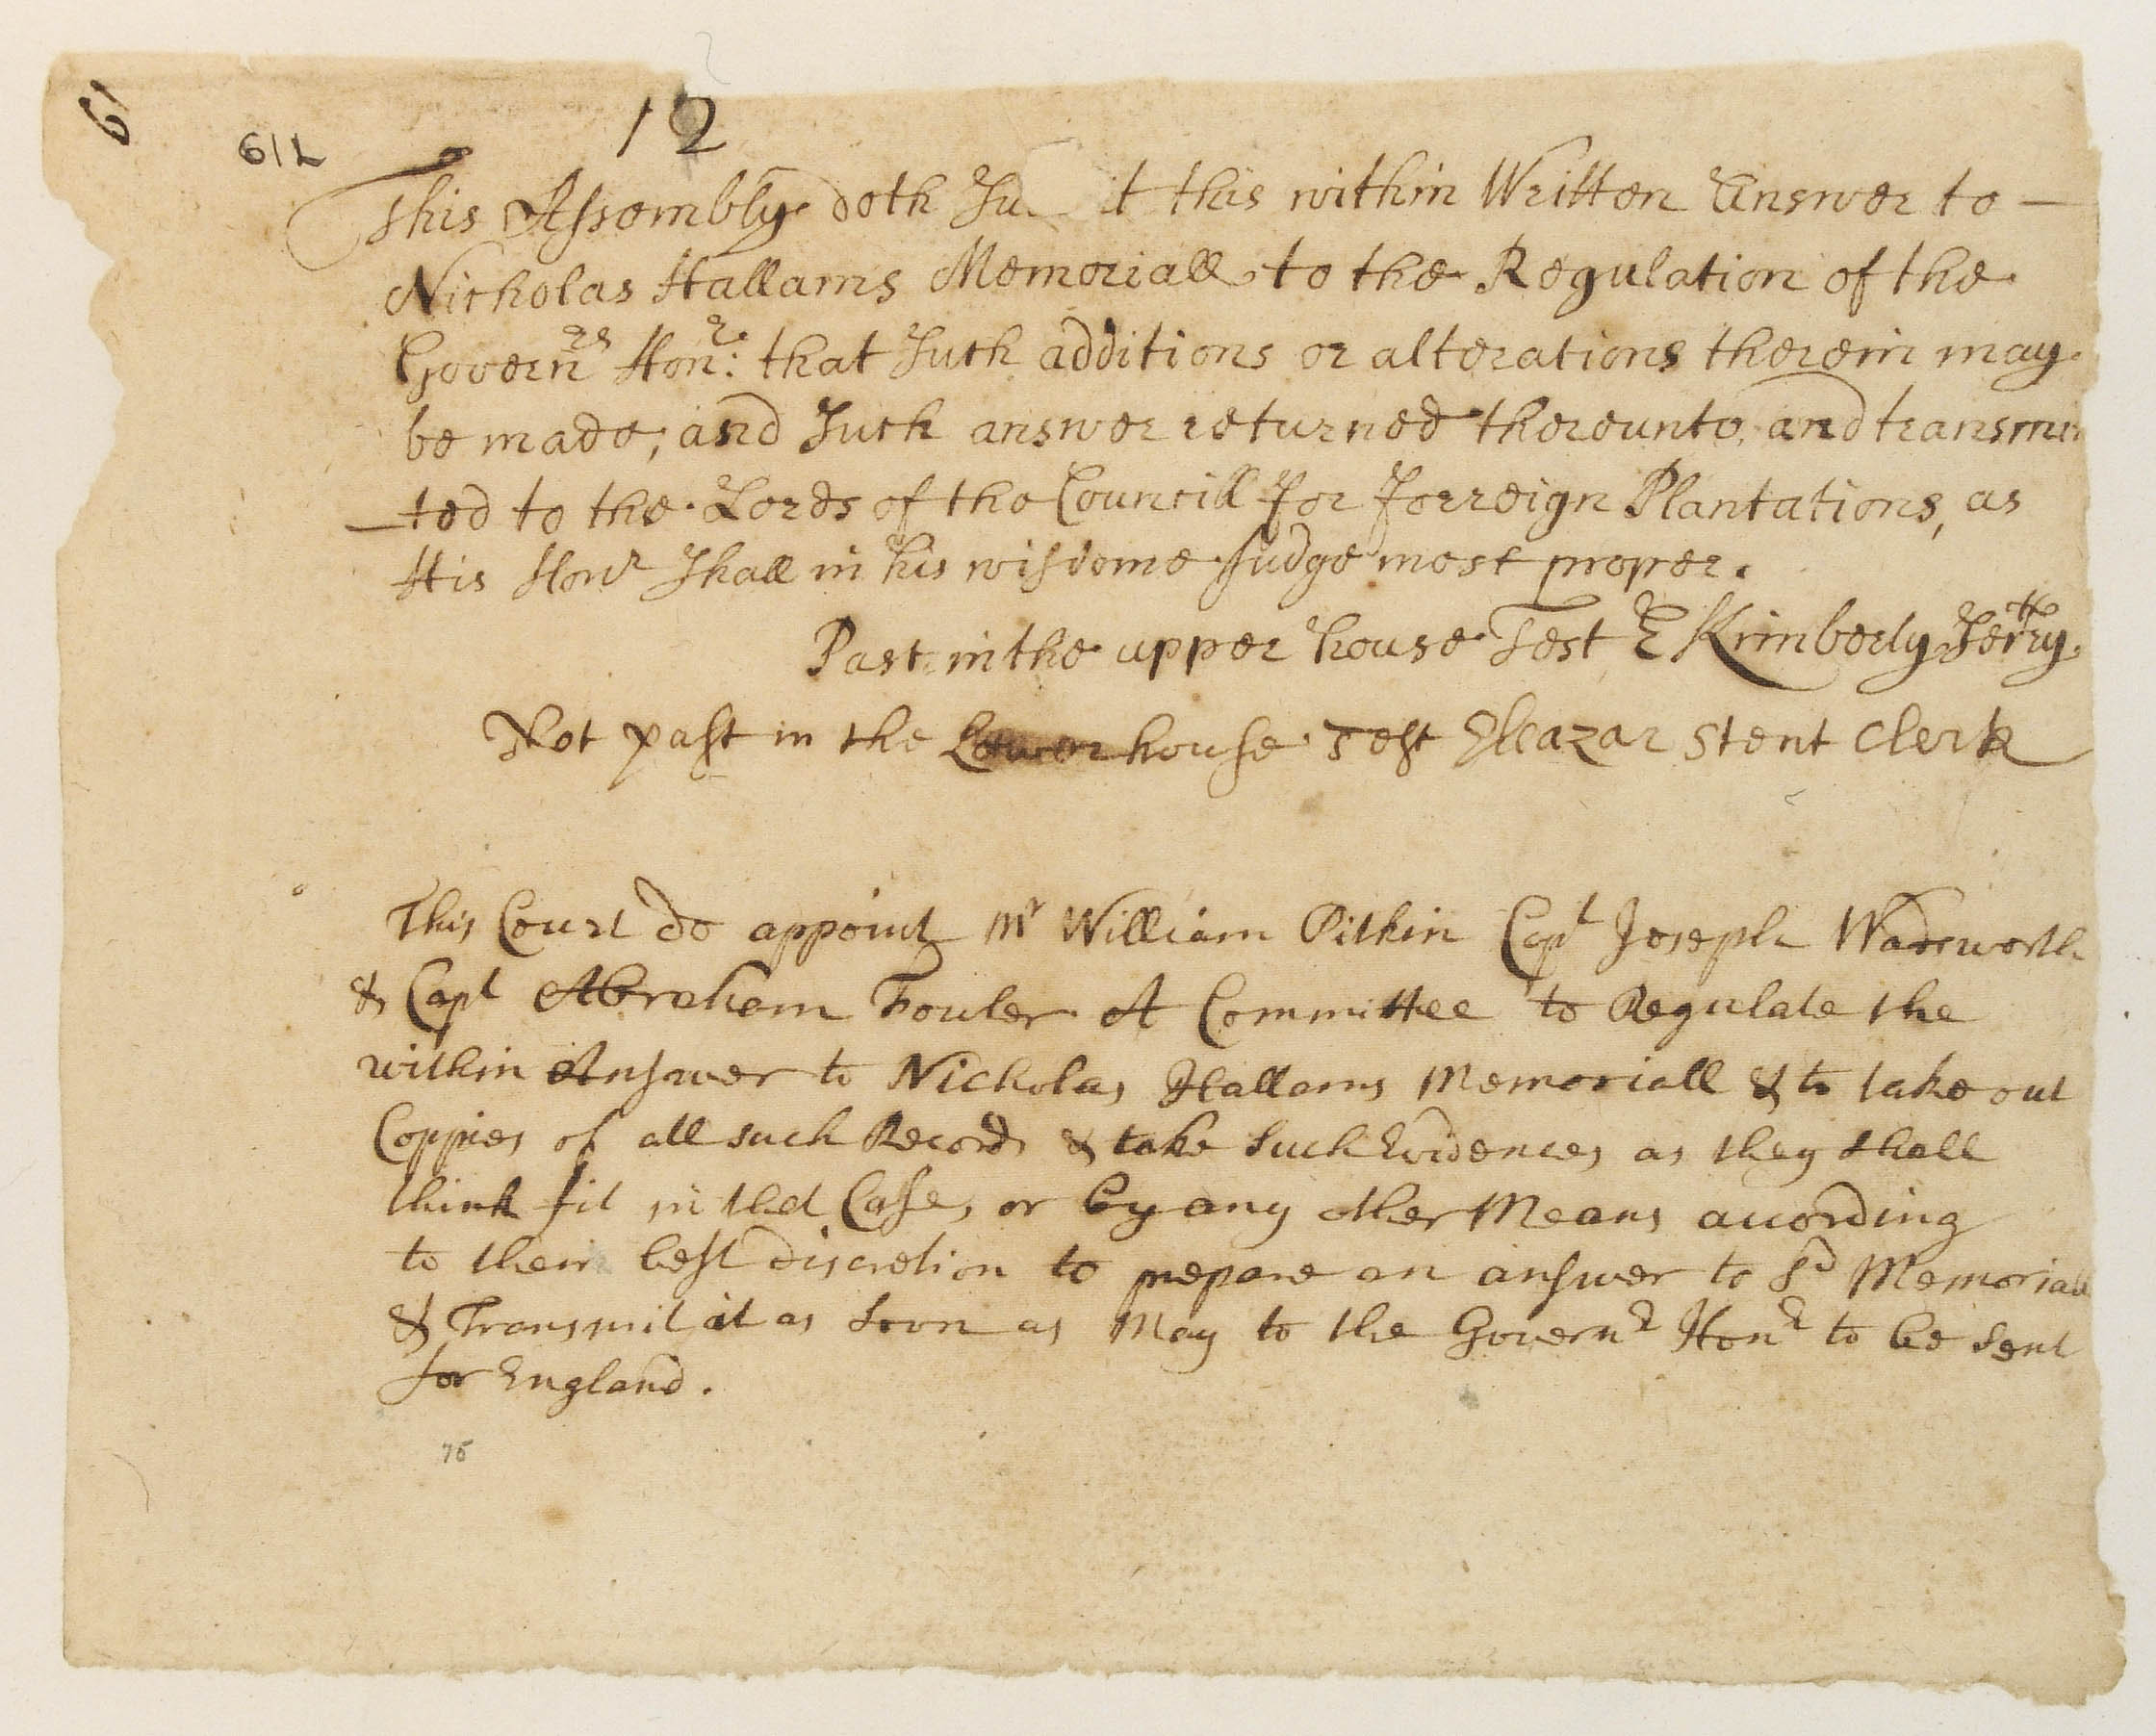 61
12
61L
This Assembly doth Su it this within Written Answer to —
Nicholas Hallams Memoriall to the Regulation of the
Governrs Honr: that Such additions or alterations therein may
be made; and Such answer returned thereunto, and transmi
—ted to the Lords of the Councill for forreign Plantations, as
His Honr Shall in his wisdome Judge most proper.
Past in the upper house Test E Kimberly Secrty.
Not past in the Lower house Test Eleazar Stent Clerk
This Court do appoint Mr William Pitkin Capt Joseph Wadsworth
& Capt Abraham Fouler A Committee to Regulate the
within Answer to Nicholas Hallams Memoriall & to take out
Coppies of all such Records & take Such Evidences as they shall
think fit in that Case, or by any other Means according
to their best discretion to prepare an answer to Sd Memoriall
& Transmit it as Soon as May to the Governr Honr to be Sent
for England.
75